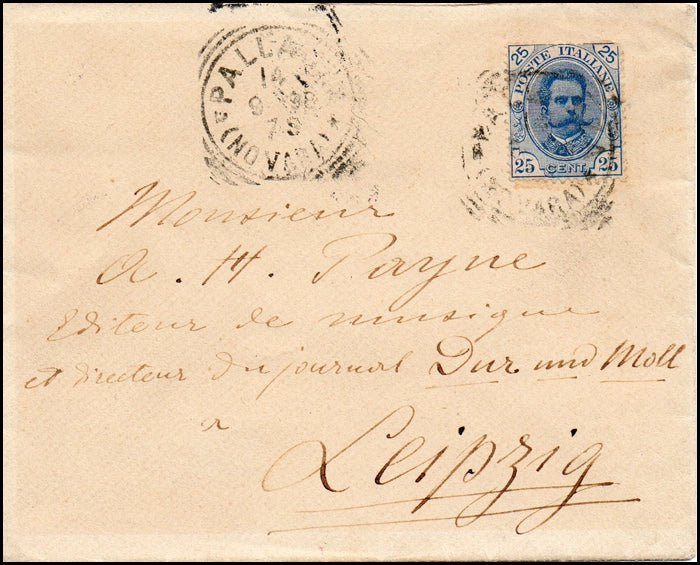 PALLANZA
14
9 98
7 S
(NOVARA)
25 POSTE ITALIANE 25
25 CENT. 25
(NOVARA)
Monsieur
A. H. Payne
Editeur de musique
et directeur du journal Dur und Moll
a
Leipzig